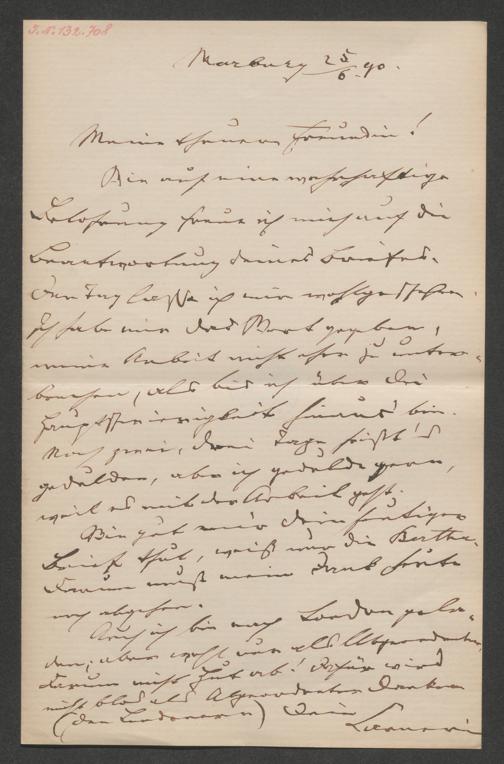 J.N. 132.708
Marburg 25/6 90.
Meine theuere Freundin!
Wie auf eine wahrhaftige
Belohnung freue ich mich auf die
Beantwortung deines Briefes.
Den Tag lasse ich mir wohlgeschehen.
Ich habe mir das Wort gegeben,
meine Arbeit nicht eher zu unter-
brechen, als bis ich über die
Hauptschwierigkeit hinaus bin.
Noch zwei, drei Tage heißt's
gedulden, aber ich gedulde gern,
weil es mit der Arbeit geht.
Wie gut mir dein heutiger
Brief thut, weiß nur die Bertha.
Darum muß mein Dank heute
noch abgehen.
Auch ich bin nach London gela-
den; aber wohl nur als Abgeordneter,
darum nicht Hut ab! Dafür wird
nicht blos als Abgeordneter danken
(den Londonern) Dein
Carneri